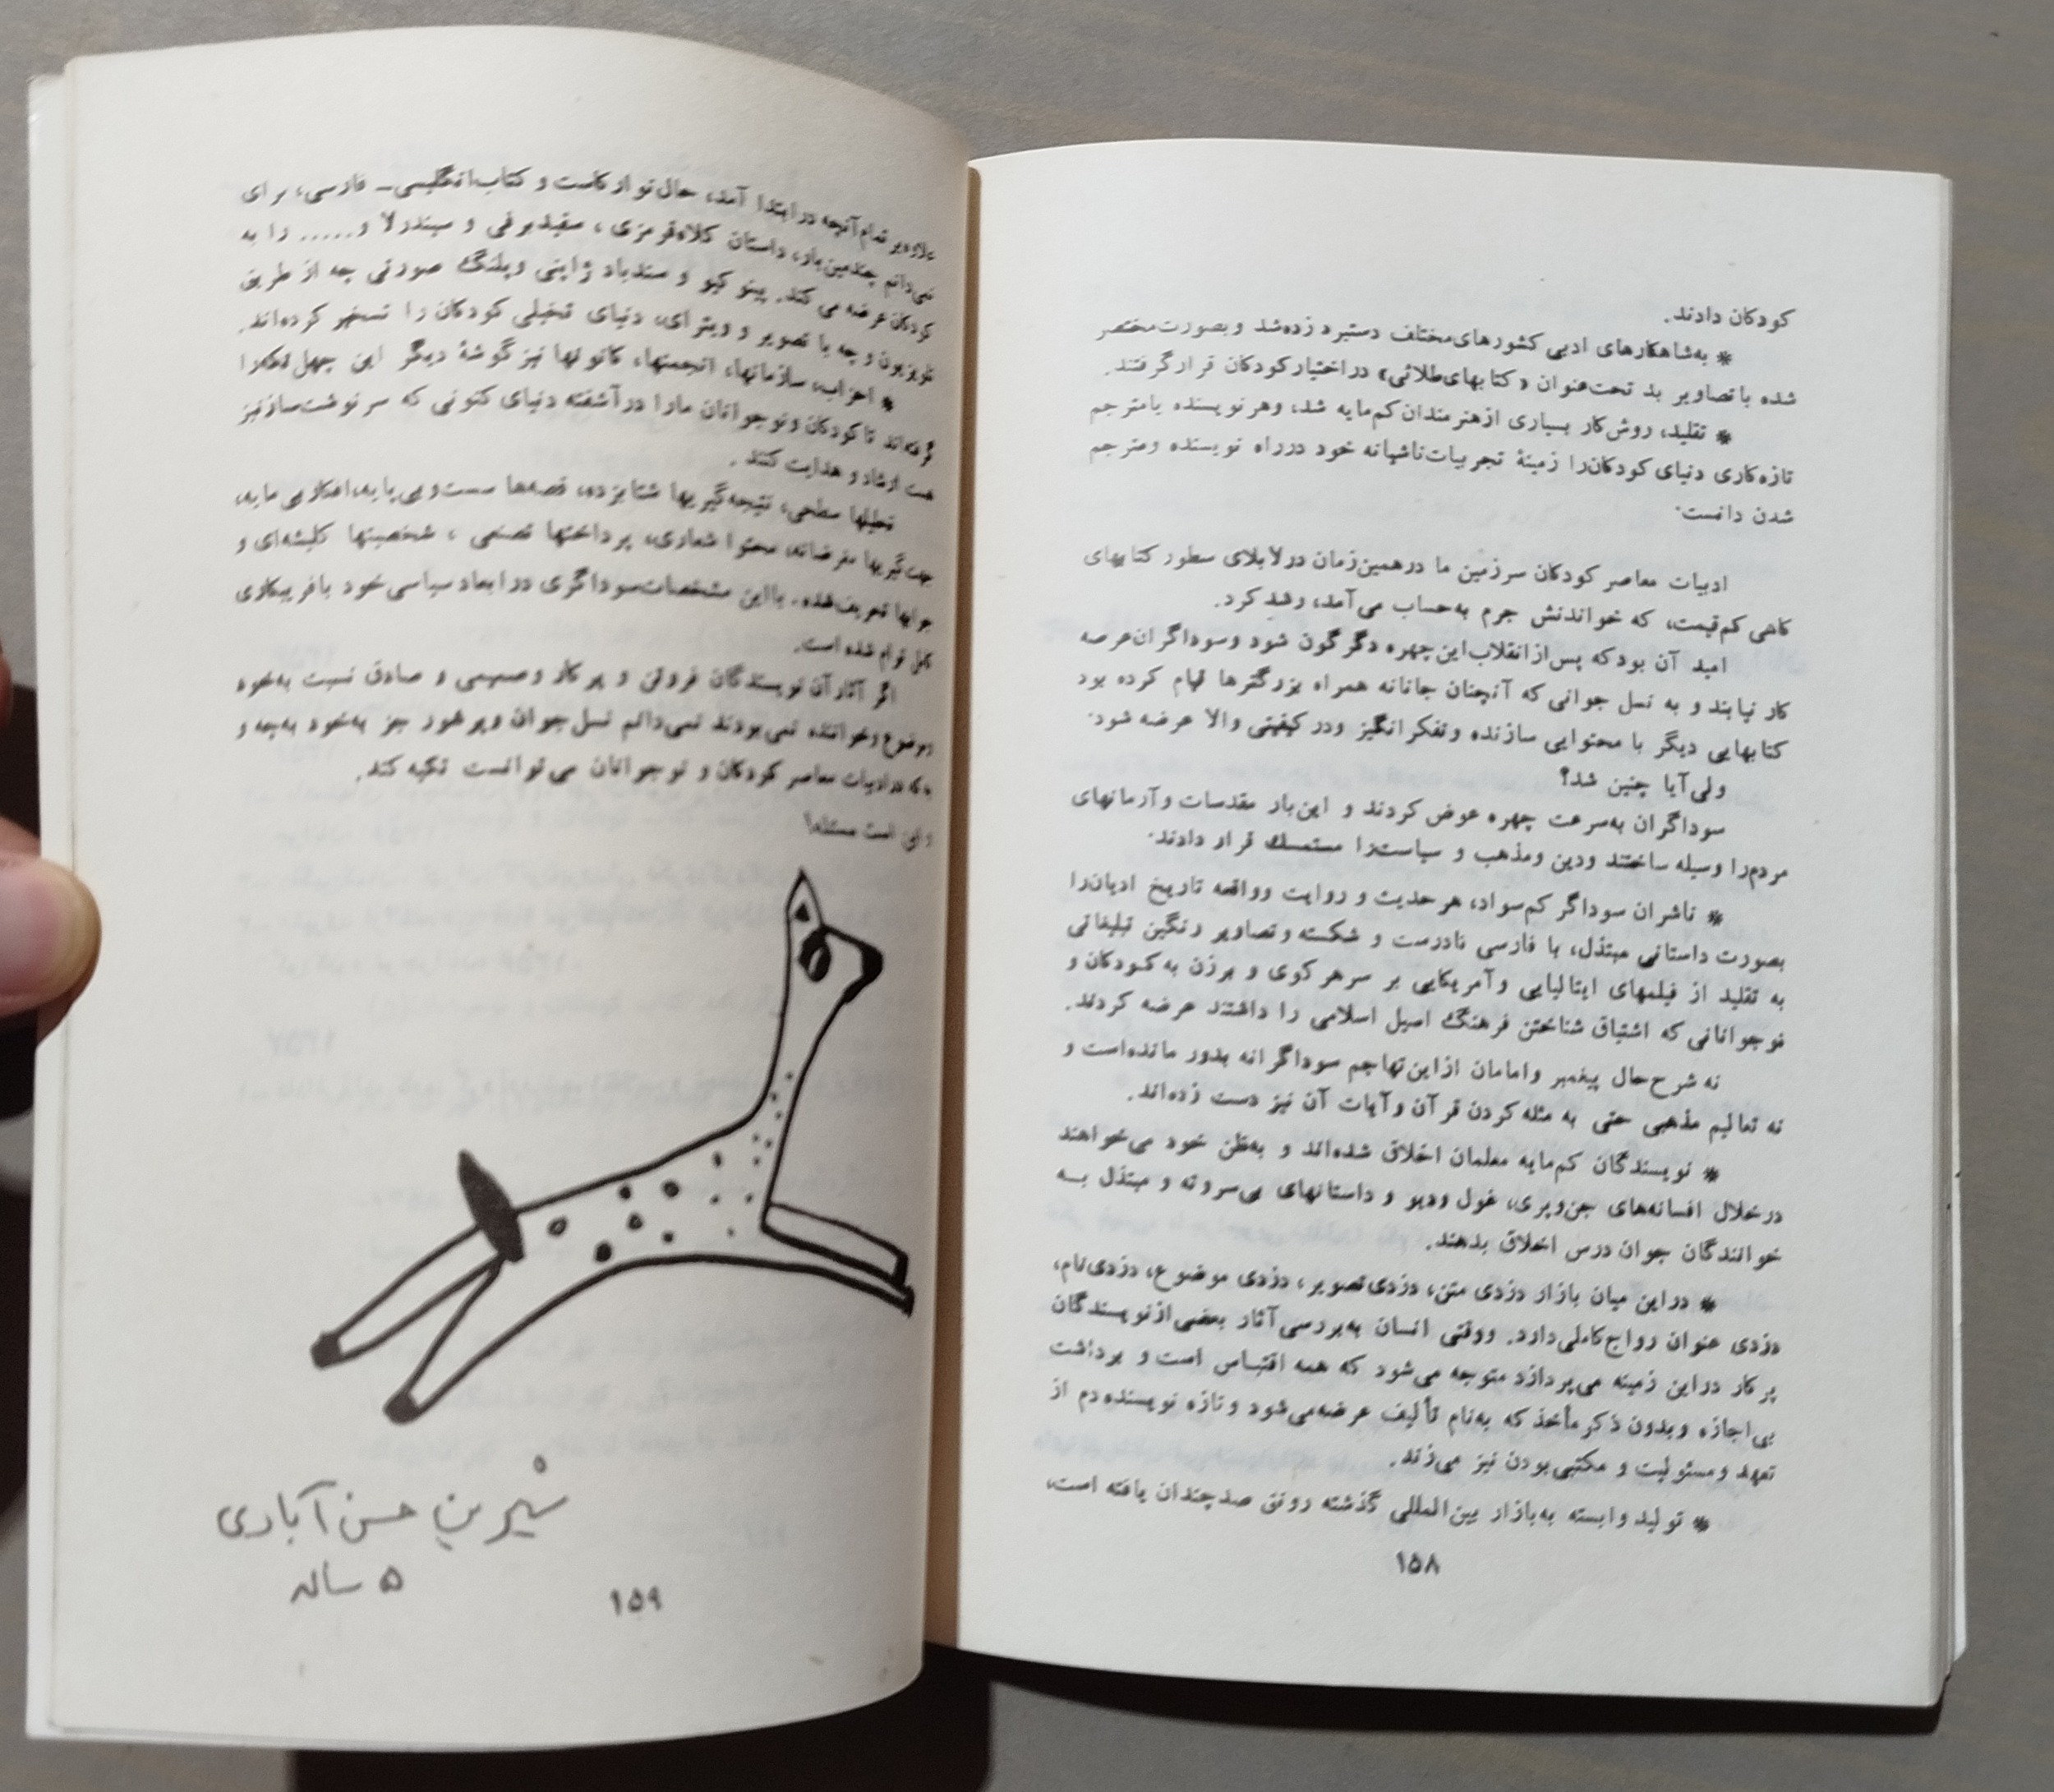 کودکان دادند.
* به‌شاهکارهای ادبی کشورهای‌مختلف دستبرد زده‌شد وبصورت‌مختصر
شده با تصاویر بد تحت‌عنوان «کتابهای‌طلائی» دراختیار‌کودکان قرارگرفتند.
* تقلید، روش‌کار بسیاری ازهنرمندان‌کم‌مایه شد، وهر نویسنده یا‌مترجم
تازه‌کاری دنیای کودکان‌را زمینهٔ تجربیات‌ناشیانه خود درراه نویسنده ومترجم
شدن دانست.
ادبیات معاصر کودکان سرزمین ما درهمین‌زمان درلابلای سطور کتابهای
کاهی کم‌قیمت، که خواندنش جرم به‌حساب می‌آمد، رشد کرد.
امید آن بود‌که پس‌از‌انقلاب‌این‌چهره دگرگون شود وسوداگران‌عرصه
کار نیابند و به نسل جوانی که آنچنان جانانه همراه بزرگترها قیام کرده بود
کتابهایی دیگر با محتوایی سازنده وتفکرانگیز ودر کیفیتی والا عرضه شود.
ولی‌آیا چنین شد؟
سوداگران به‌سرعت چهره عوض کردند و این‌بار مقدسات و‌آرمانهای
مردم‌را وسیله ساختند ودین ومذهب و سیاست‌را مستمسک قرار دادند.
* ناشران سوداگر کم‌سواد، هر‌حدیث و روایت و‌واقعه تاریخ ادیان‌را
بصورت داستانی مبتذل، با فارسی نادرست و شکسته و‌تصاویر رنگین تبلیغاتی
به تقلید از فیلمهای ایتالیایی و‌آمریکایی بر سر‌هر‌کوی و برزن به کودکان و
نوجوانانی که اشتیاق شناختن فرهنگ اصیل اسلامی را داشتند عرضه کردند.
نه شرح‌حال پیغمبر و‌امامان از‌این‌تهاجم سوداگرانه بدور مانده‌است و
نه تعالیم مذهبی حتی به مثله کردن قرآن و‌آیات آن نیز دست زده‌اند.
* نویسندگان کم‌مایه معلمان اخلاق شده‌اند و به‌ظن خود می‌خواهند
در‌خلال افسانه‌های جن‌و‌پری، غول و‌دیو و داستانهای بی‌سروته و مبتذل به
خوانندگان جوان درس اخلاق بدهند.
* در‌این میان بازار دزدی متن، دزدی‌تصویر، دزدی موضوع، دزدی‌نام،
دزدی عنوان رواج‌کاملی‌دارد. و‌وقتی انسان به‌بررسی‌آثار بعضی‌از‌نویسندگان
پرکار در‌این زمینه می‌پردازد متوجه می‌شود که همه اقتباس است و برداشت
بی‌اجازه و‌بدون ذکر‌مأخذ که به‌نام تألیف عرضه‌می‌شود و‌تازه نویسنده‌دم از
تعهد و‌مسئولیت و مکتبی‌بودن نیز می‌زند.
* تولید وابسته به‌بازار بین‌المللی گذشته رونق صدچندان یافته است،
۱۵۸
علاوه‌بر تمام‌آنچه در‌ابتدا آمد، حال‌نوار‌کاست و کتاب‌انگلیسی- فارسی، برای
نمی‌دانم چندمین‌بار، داستان کلاه‌قرمزی، سفیدبرفی و سیندرلا و..... را به
کودکان عرضه می‌کند. پینوکیو و سندباد ژاپنی و‌پلنگ صورتی چه از طریق
تلویزیون و‌چه با تصویر و ویترای، دنیای تخیلی کودکان را تسخیر کرده‌اند.
* احزاب، سازمانها، انجمنها، کانونها نیز گوشهٔ دیگر این چهل‌تکه‌را
گرفته‌اند تا کودکان و‌نوجوانان مارا در‌آشفته دنیای کنونی که سرنوشت‌ساز‌نیز
هست ارشاد و هدایت کنند.
تحلیلها سطحی، نتیجه‌گیریها شتابزده، قصه‌ها سست‌و‌بی‌پایه، افکار‌بی‌مایه،
جهت‌گیریها مغرضانه، محتوا شعاری، پرداختها تصنعی، شخصیتها کلیشه‌ای و
جوابها تحریف‌شده. با‌این مشخصات‌سوداگری در‌ابعاد سیاسی‌خود با‌فریبکاری
کامل توام شده است.
اگر آثار‌آن نویسندگان فروتن و پرکار و‌صمیمی و صادق نسبت به‌خود
و‌موضوع و‌خواننده نمی‌بودند نمی‌دانم نسل‌جوان و‌پرشور جز به‌خود به‌چه و
به‌که در‌ادبیات معاصر کودکان و نوجوانان می‌توانست تکیه کند.
و این است مسئله!
شیرین حسن آبادی
۵ ساله
۱۵۹